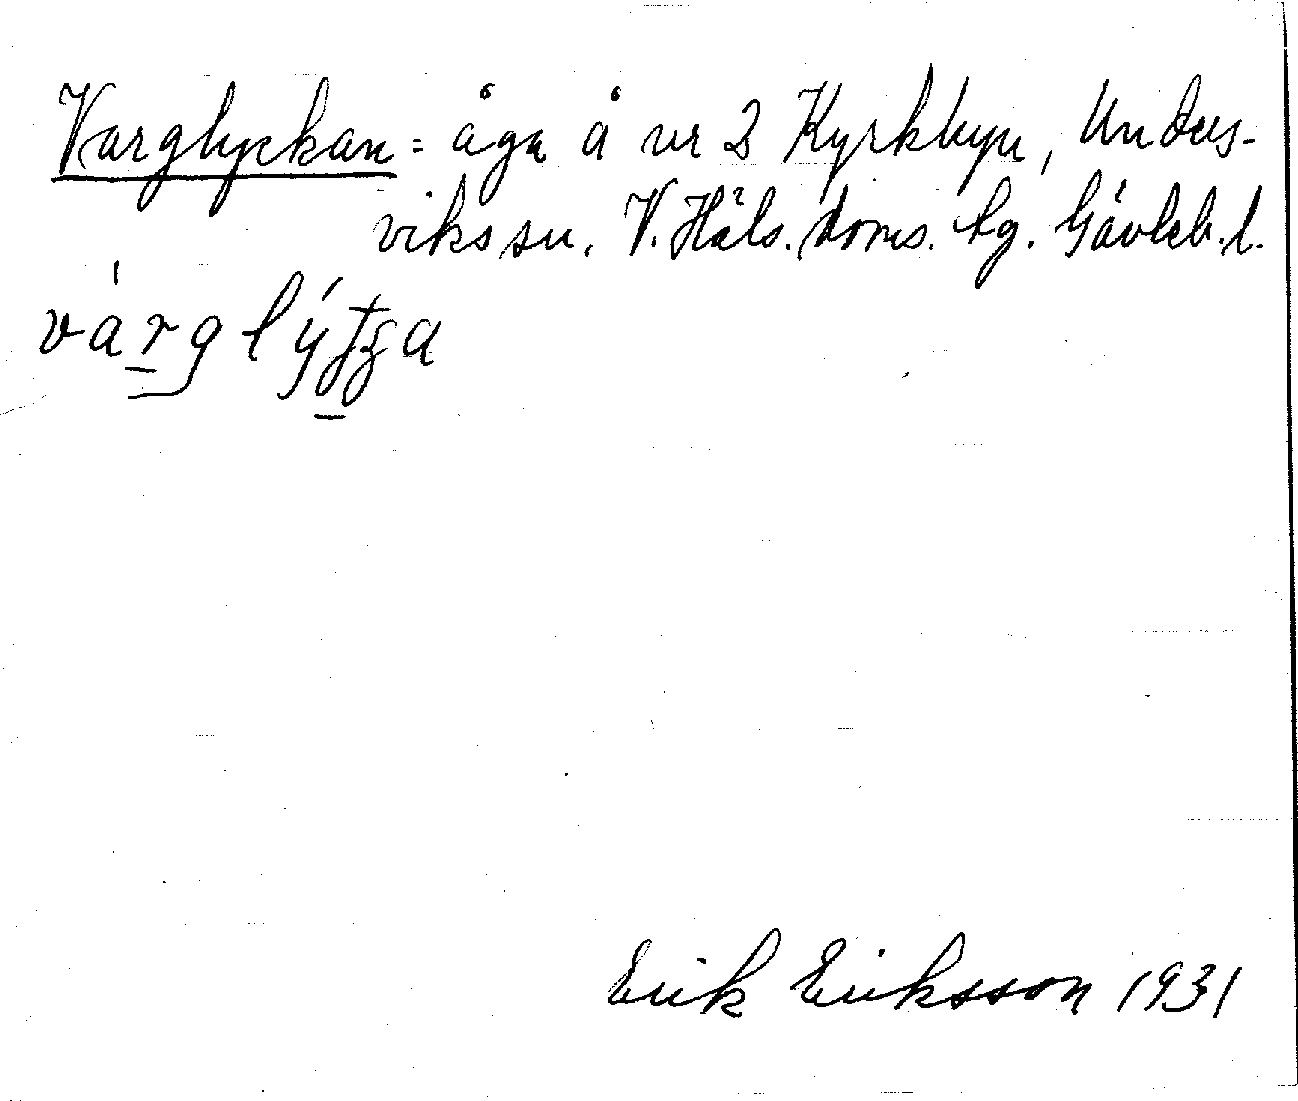 Varglyckan = åga å nr 2 Kyrkbyn, Unders-
vikssn. V. Häls. doms. tg. Gävleb. l.
Erik Eriksson 1931